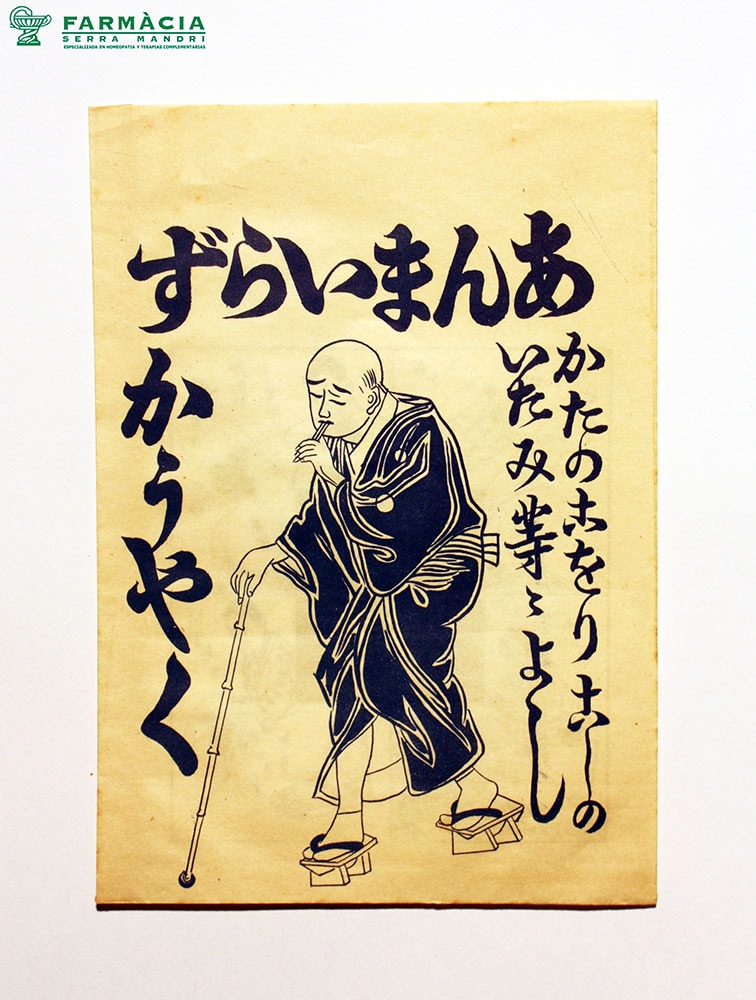 FARMÀCIA
SERRA MANDRI
ESPECIALIZADA EN HOMEOPATIA Y TERAPIAS COMPLEMENTARIAS
あんまいらず
かうやく
かたのこをりこしの
いたみ等によろし